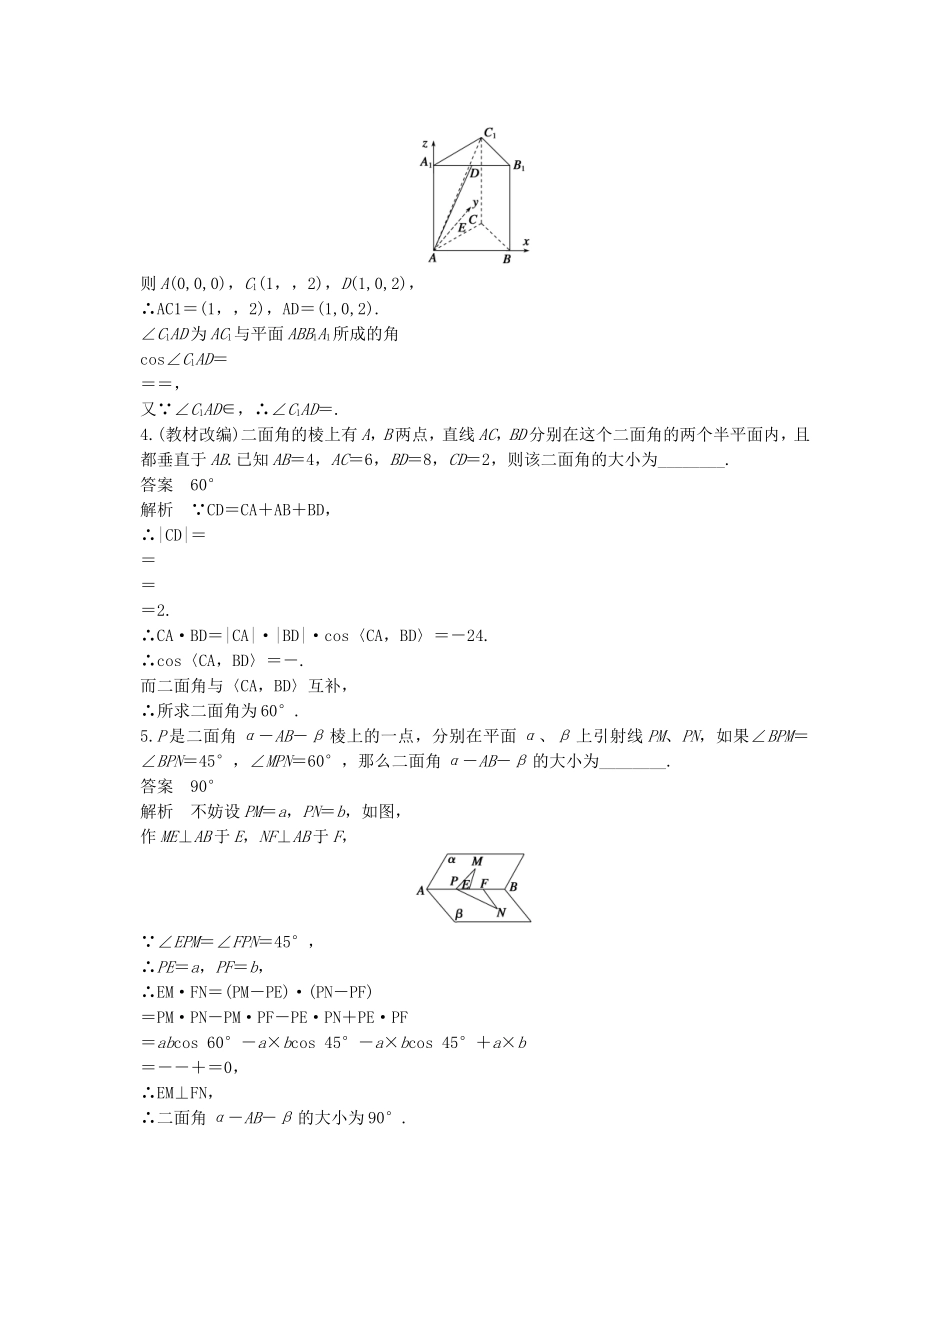 C1
z
A1
B1
D
y
C
E
x
A
B
则 A(0,0,0)，C1(1，，2)，D(1,0,2)，
∴AC1＝(1，，2)，AD＝(1,0,2).
∠C1AD 为 AC1与平面 ABB1A1所成的角
cos∠C1AD＝
＝＝，
又∵∠C1AD∈，∴∠C1AD＝.
4.(教材改编)二面角的棱上有 A，B 两点，直线 AC，BD 分别在这个二面角的两个半平面内，且
都垂直于 AB.已知 AB＝4，AC＝6，BD＝8，CD＝2，则该二面角的大小为________.
答案　60°
解析　∵CD＝CA＋AB＋BD，
∴|CD|＝
＝
＝
＝2.
∴CA·BD＝|CA|·|BD|·cos〈CA，BD〉＝－24.
∴cos〈CA，BD〉＝－.
而二面角与〈CA，BD〉互补，
∴所求二面角为 60°.
5.P 是二面角 α－AB－β 棱上的一点，分别在平面 α、β 上引射线 PM、PN，如果∠BPM＝
∠BPN＝45°，∠MPN＝60°，那么二面角 α－AB－β 的大小为________.
答案　90°
解析　不妨设 PM＝a，PN＝b，如图，
作 ME⊥AB 于 E，NF⊥AB 于 F，
α M
A P E F B
β N
∵∠EPM＝∠FPN＝45°，
∴PE＝a，PF＝b，
∴EM·FN＝(PM－PE)·(PN－PF)
＝PM·PN－PM·PF－PE·PN＋PE·PF
＝abcos 60°－a×bcos 45°－a×bcos 45°＋a×b
＝－－＋＝0，
∴EM⊥FN，
∴二面角 α－AB－β 的大小为 90°.